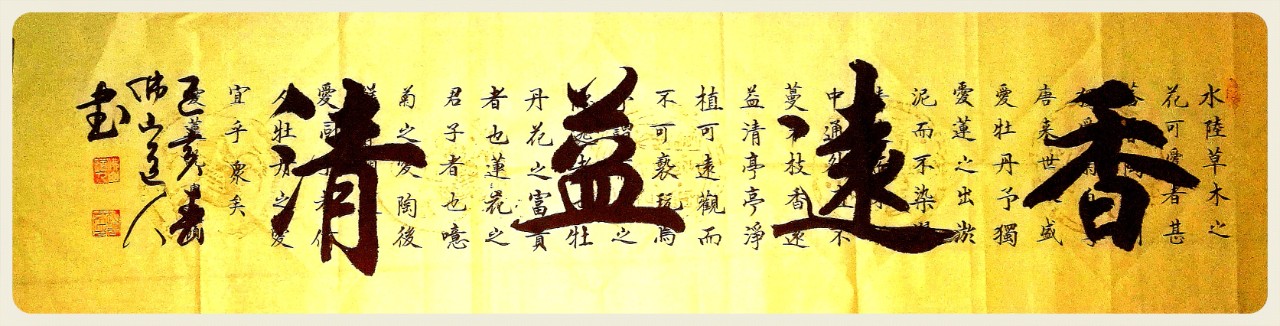 香遠益清
水陸草木之
花可愛者甚
唐来世人盛
愛牡丹予獨
愛蓮之出淤
泥而不染濯
中通外直不
蔓不枝香遠
益清亭亭淨
植可遠觀而
不可褻玩焉
予謂菊花之
者也牡
丹花之富貴
者也蓮花之
君子者也噫
菊之愛陶後
愛同予者何
人牡丹之愛
宜乎衆矣
己亥春
佛山道人
书